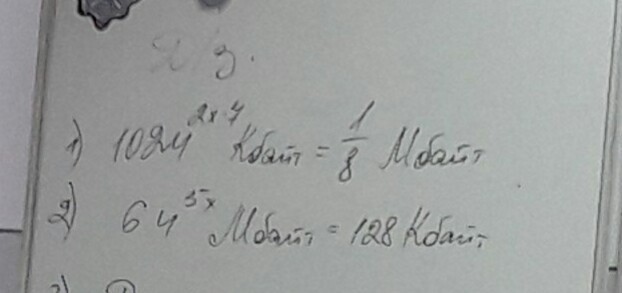 Д/з.
1) 1024^{2x-7} Кбайт = 1/8 Мбайт
2) 64^{5x} Мбайт = 128 Кбайт
3)